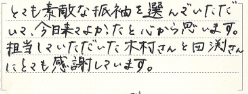 とても素敵な振袖を選んでいただ
いて、今日来てよかったと心から思います。
担当していただいた木村さんと田渕さん
にとても感謝しています。